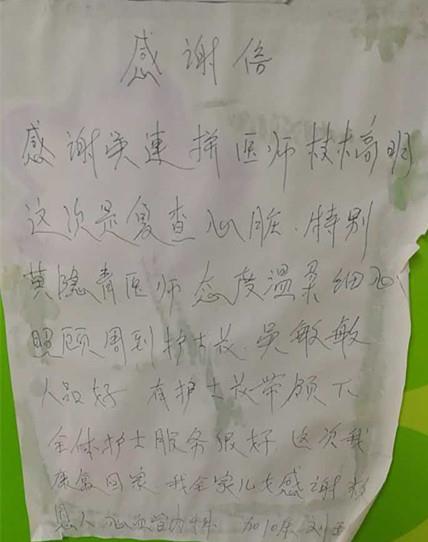 感谢信
感谢吴连拼医师技术高明
这次是复查心脏.特别
黄隐青医师态度温柔细心
照顾周到护士长.吴敏敏
人品好 有护士长带领下
全体护士服务很好 这次我
康复回家 我全家儿女感谢救
恩人 心血管内科. 加10床